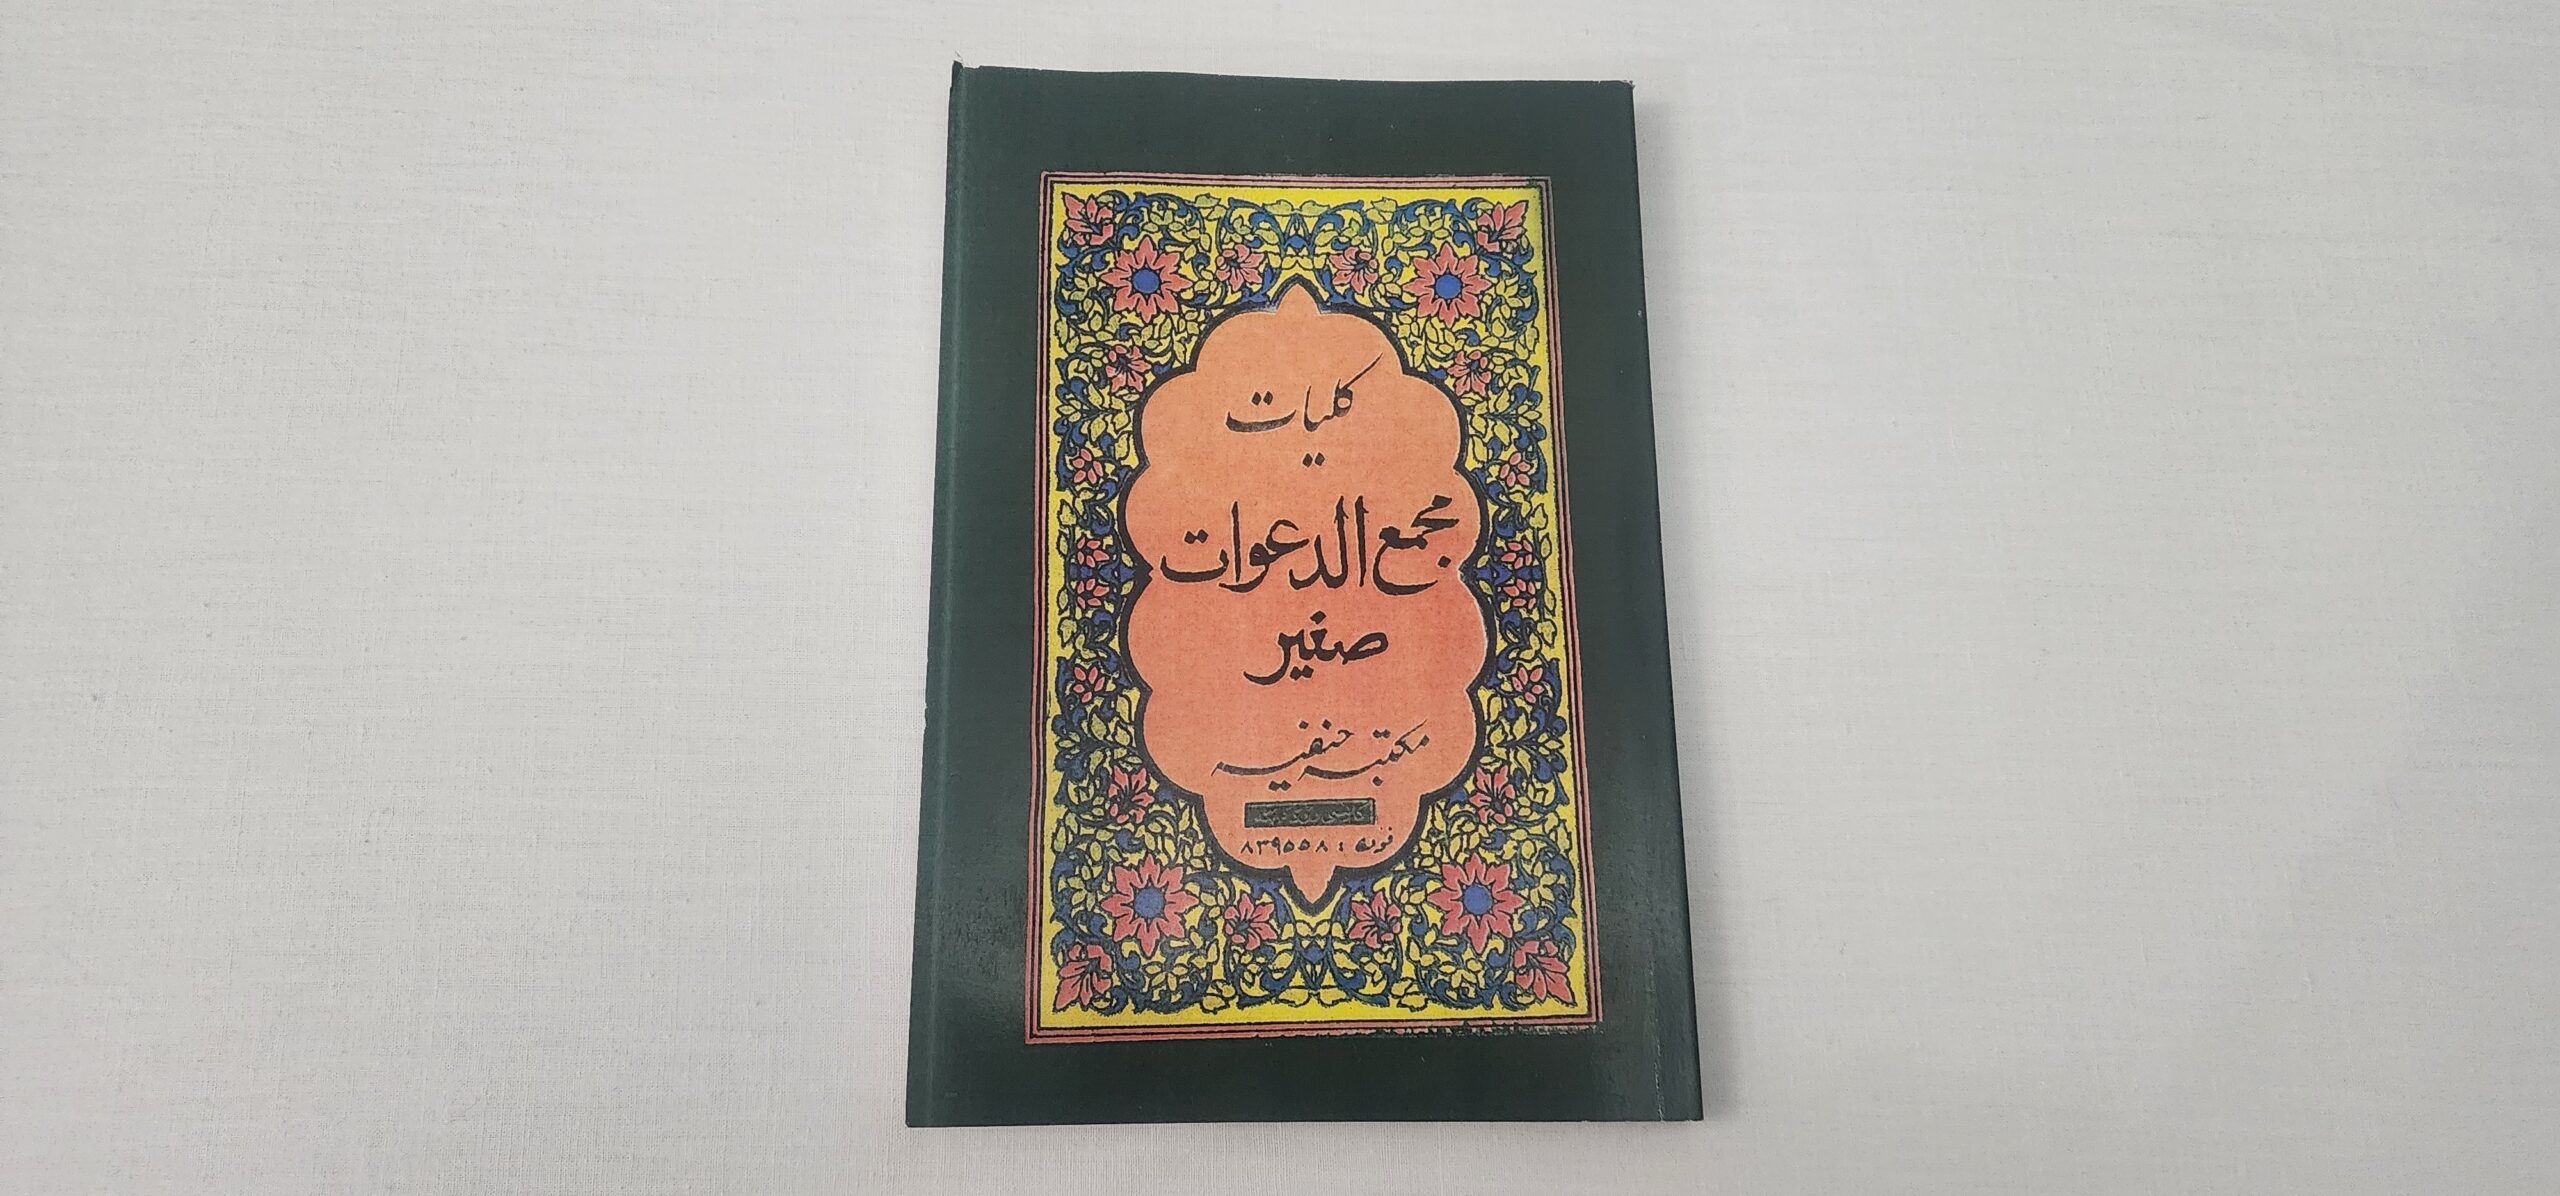 کلیات
مجمع الدعوات
صغیر
مکتبہ حنفیہ
فون : ۸۳۹۵۵۸